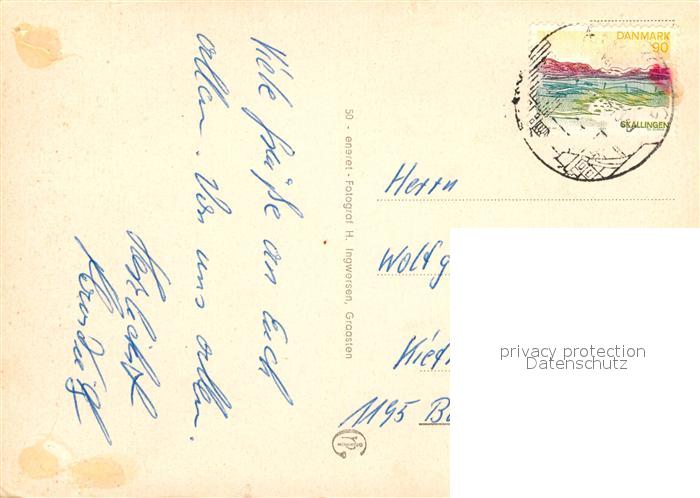 Viele Grüße an Euch
allen. Von uns allen.
Herzlichst
50 - eneret - Fotograf H. Ingwersen, Graasten
DANMARK
90
SKALLINGEN
Herrn
Wolfg
1195 B
privacy protection
Datenschutz